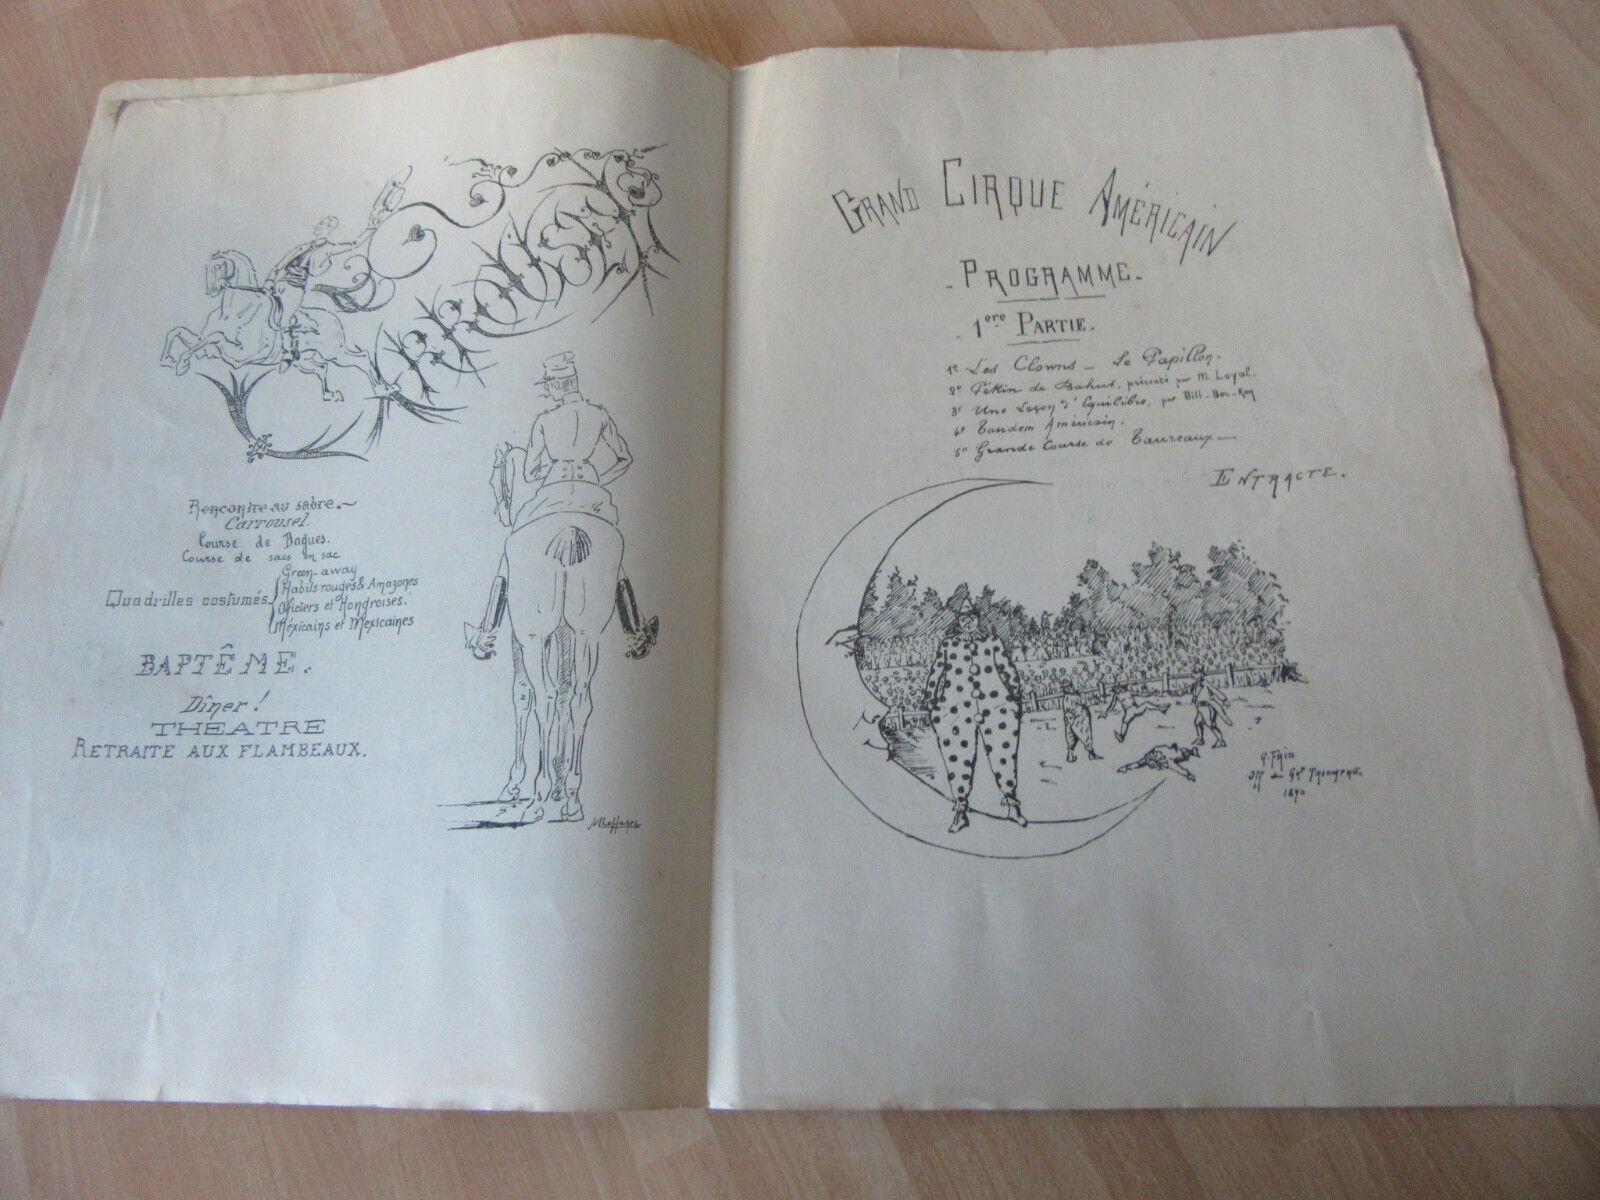 CARROUSEL
Rencontre au sabre.
Carrousel.
Course de Bagues.
Course de sacs en sac
Quadrilles costumés
Green-away
Habits rouges & Amazones
Oficiers et Hongroises.
Méxicains et Mexicaines
BAPTÊME.
Dîner !
THÉATRE
RETRAITE AUX FLAMBEAUX.
GRAND CIRQUE AMÉRICAIN
PROGRAMME.
1ere PARTIE.
1º Les Clowns - Le Papillon.
2º Pékin de Bahut, présenté par M. Loyal.
3º Une Leçon d'Equilibre, par Bill-Boc-Key
4º Tandem Américain.
5º Grande Course de Taureaux
ENTRACTE.
1890